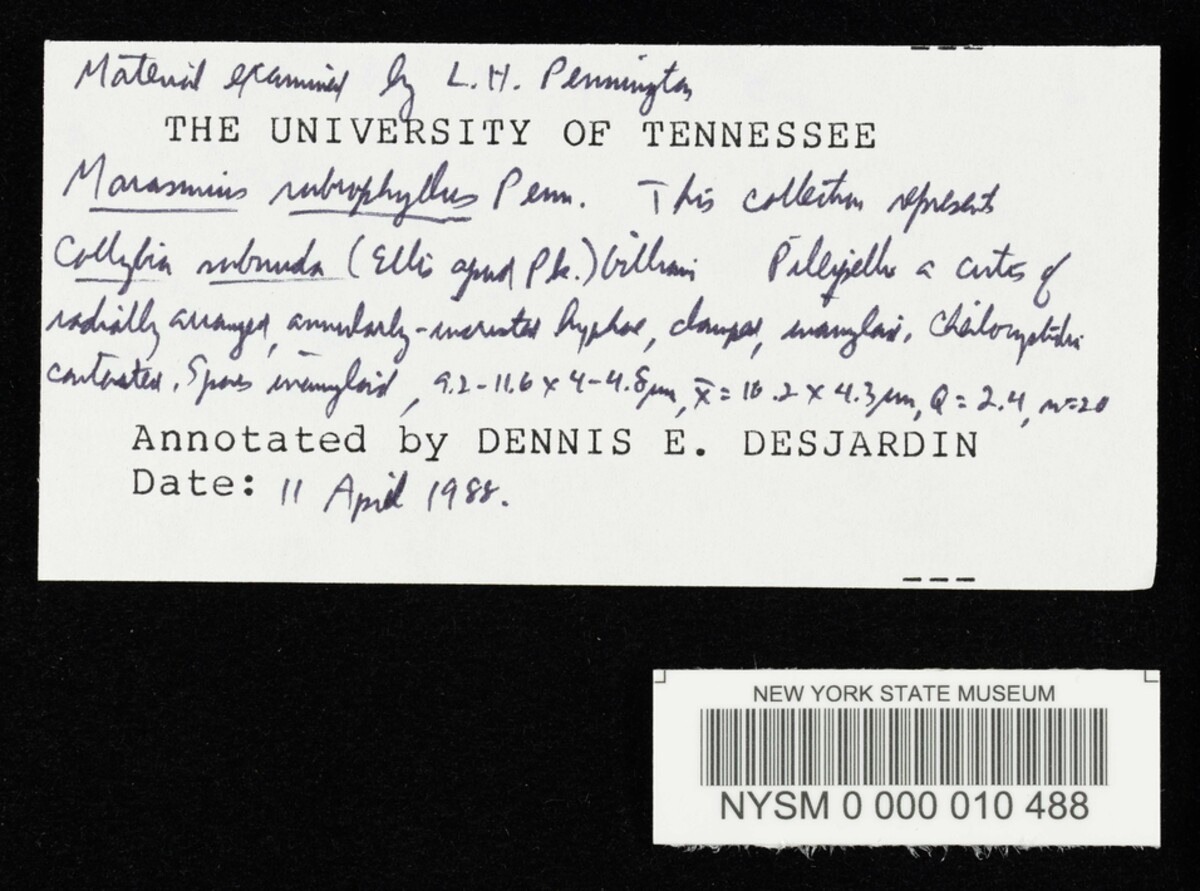 Material examined by L.H. Pennington
THE UNIVERSITY OF TENNESSEE
Marasmius rubrophyllus Penn. This collection represents
Collybia subnuda (Ellis apud Pk.) Gilliam Pileipellis a cutis of
radially arranged, annularly-incrusted hyphae, clamped, inamyloid. Cheilocystidia
contorted. Spores inamyloid, 9.2-11.6 x 4-4.8µm, x̄ = 10.2 x 4.3µm, Q = 2.4, n=20
Annotated by DENNIS E. DESJARDIN
Date: 11 April 1988.
NEW YORK STATE MUSEUM
NYSM 0 000 010 488